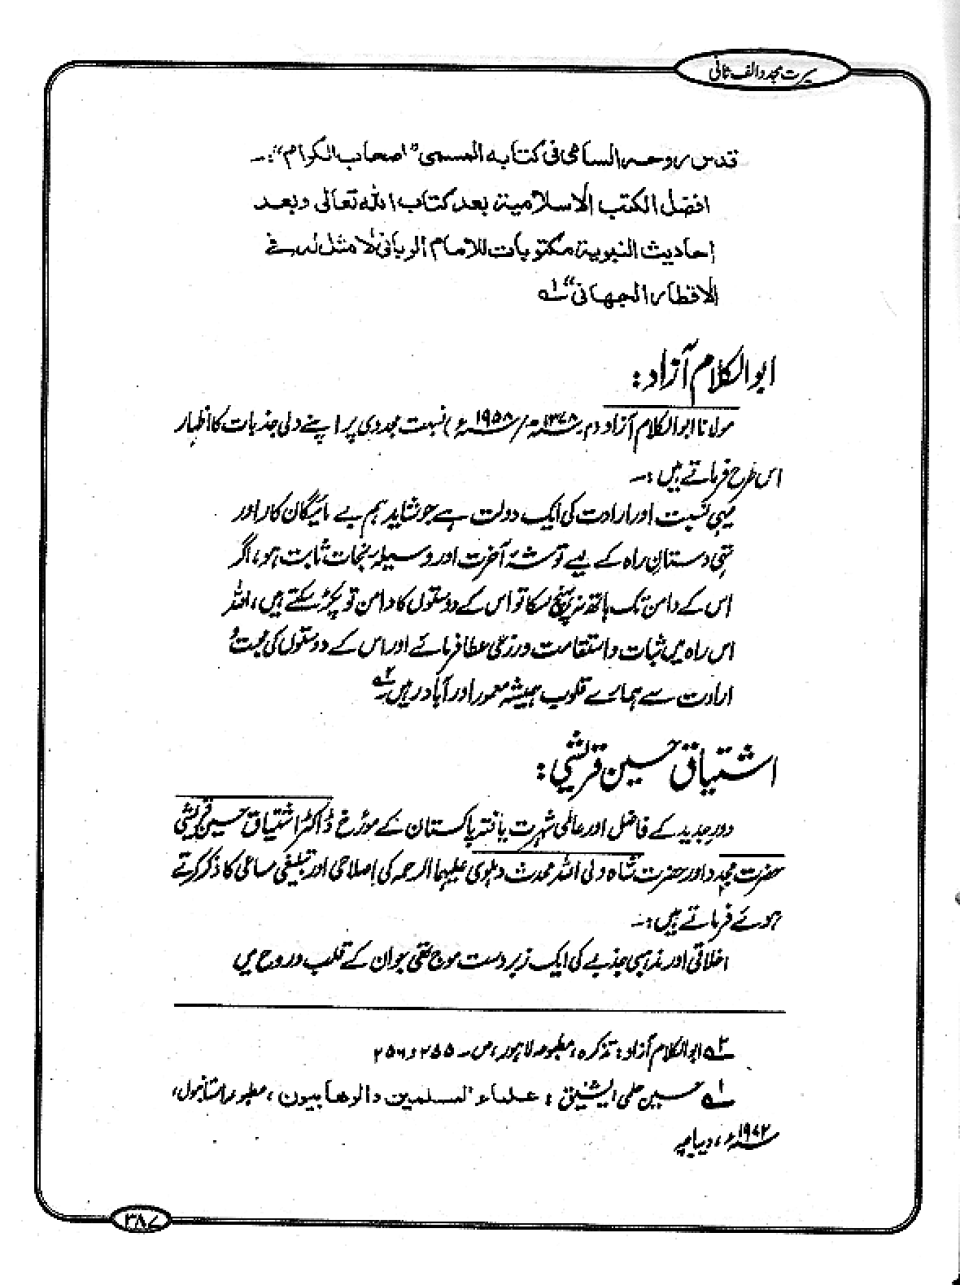 سیرت مجدد الف ثانی
قدس روحہ السامی فی کتابہ المسمی "اصحاب الکرام":۔
افضل الکتب الاسلامیۃ بعد کتاب اللہ تعالی وبعد
احادیث النبویۃ مکتوبات للامام الربانی لا مثل لہ فی
الاقطار الجھانی" ۱ھ
ابوالکلام آزاد:
مولانا ابوالکلام آزاد (م۔ ۱۳۷۸ھ/ ۱۹۵۸ء) نسبت مجددی پر اپنے دلی جذبات کا اظہار
اس طرح فرماتے ہیں:۔
یہی نسبت اور ارادت کی ایک دولت ہے جو شاید ہم بے مائیگان کار اور
تہی دستانِ راہ کے لیے توشۂ آخرت اور وسیلۂ نجات ثابت ہو، اگر
اس کے دامن تک ہاتھ نہ پہنچ سکا تو اس کے دوستوں کا دامن تو پکڑ سکتے ہیں، اللہ
اس راہ میں ثبات و استقامت ورزگی عطا فرمائے اور اس کے دوستوں کی محبت و
ارادت سے ہمارے قلوب ہمیشہ معمور اور آباد رہیں ۲ھ
اشتیاق حسین قریشی:
دورِ جدید کے فاضل اور عالمی شہرت یافتہ پاکستان کے مورّخ ڈاکٹر اشتیاق حسین قریشی
حضرت مجدد اور حضرت شاہ ولی اللہ محدث دہلوی علیہما الرحمہ کی اصلاحی اور تبلیغی مساعی کا ذکر کرتے
ہوئے فرماتے ہیں:۔
اخلاقی اور مذہبی جذبے کی ایک زبردست موج تھی جو ان کے قلب و روح میں
۲ھ ابوالکلام آزاد: تذکرہ، مطبوعہ لاہور، ص۔ ۲۵۵ و ۲۵۶
۱ھ حسین حلمی ایشیق: علماء المسلمین والوھابیون، مطبوعہ استانبول،
۱۹۷۲ء، دیباچہ
۳۸۷